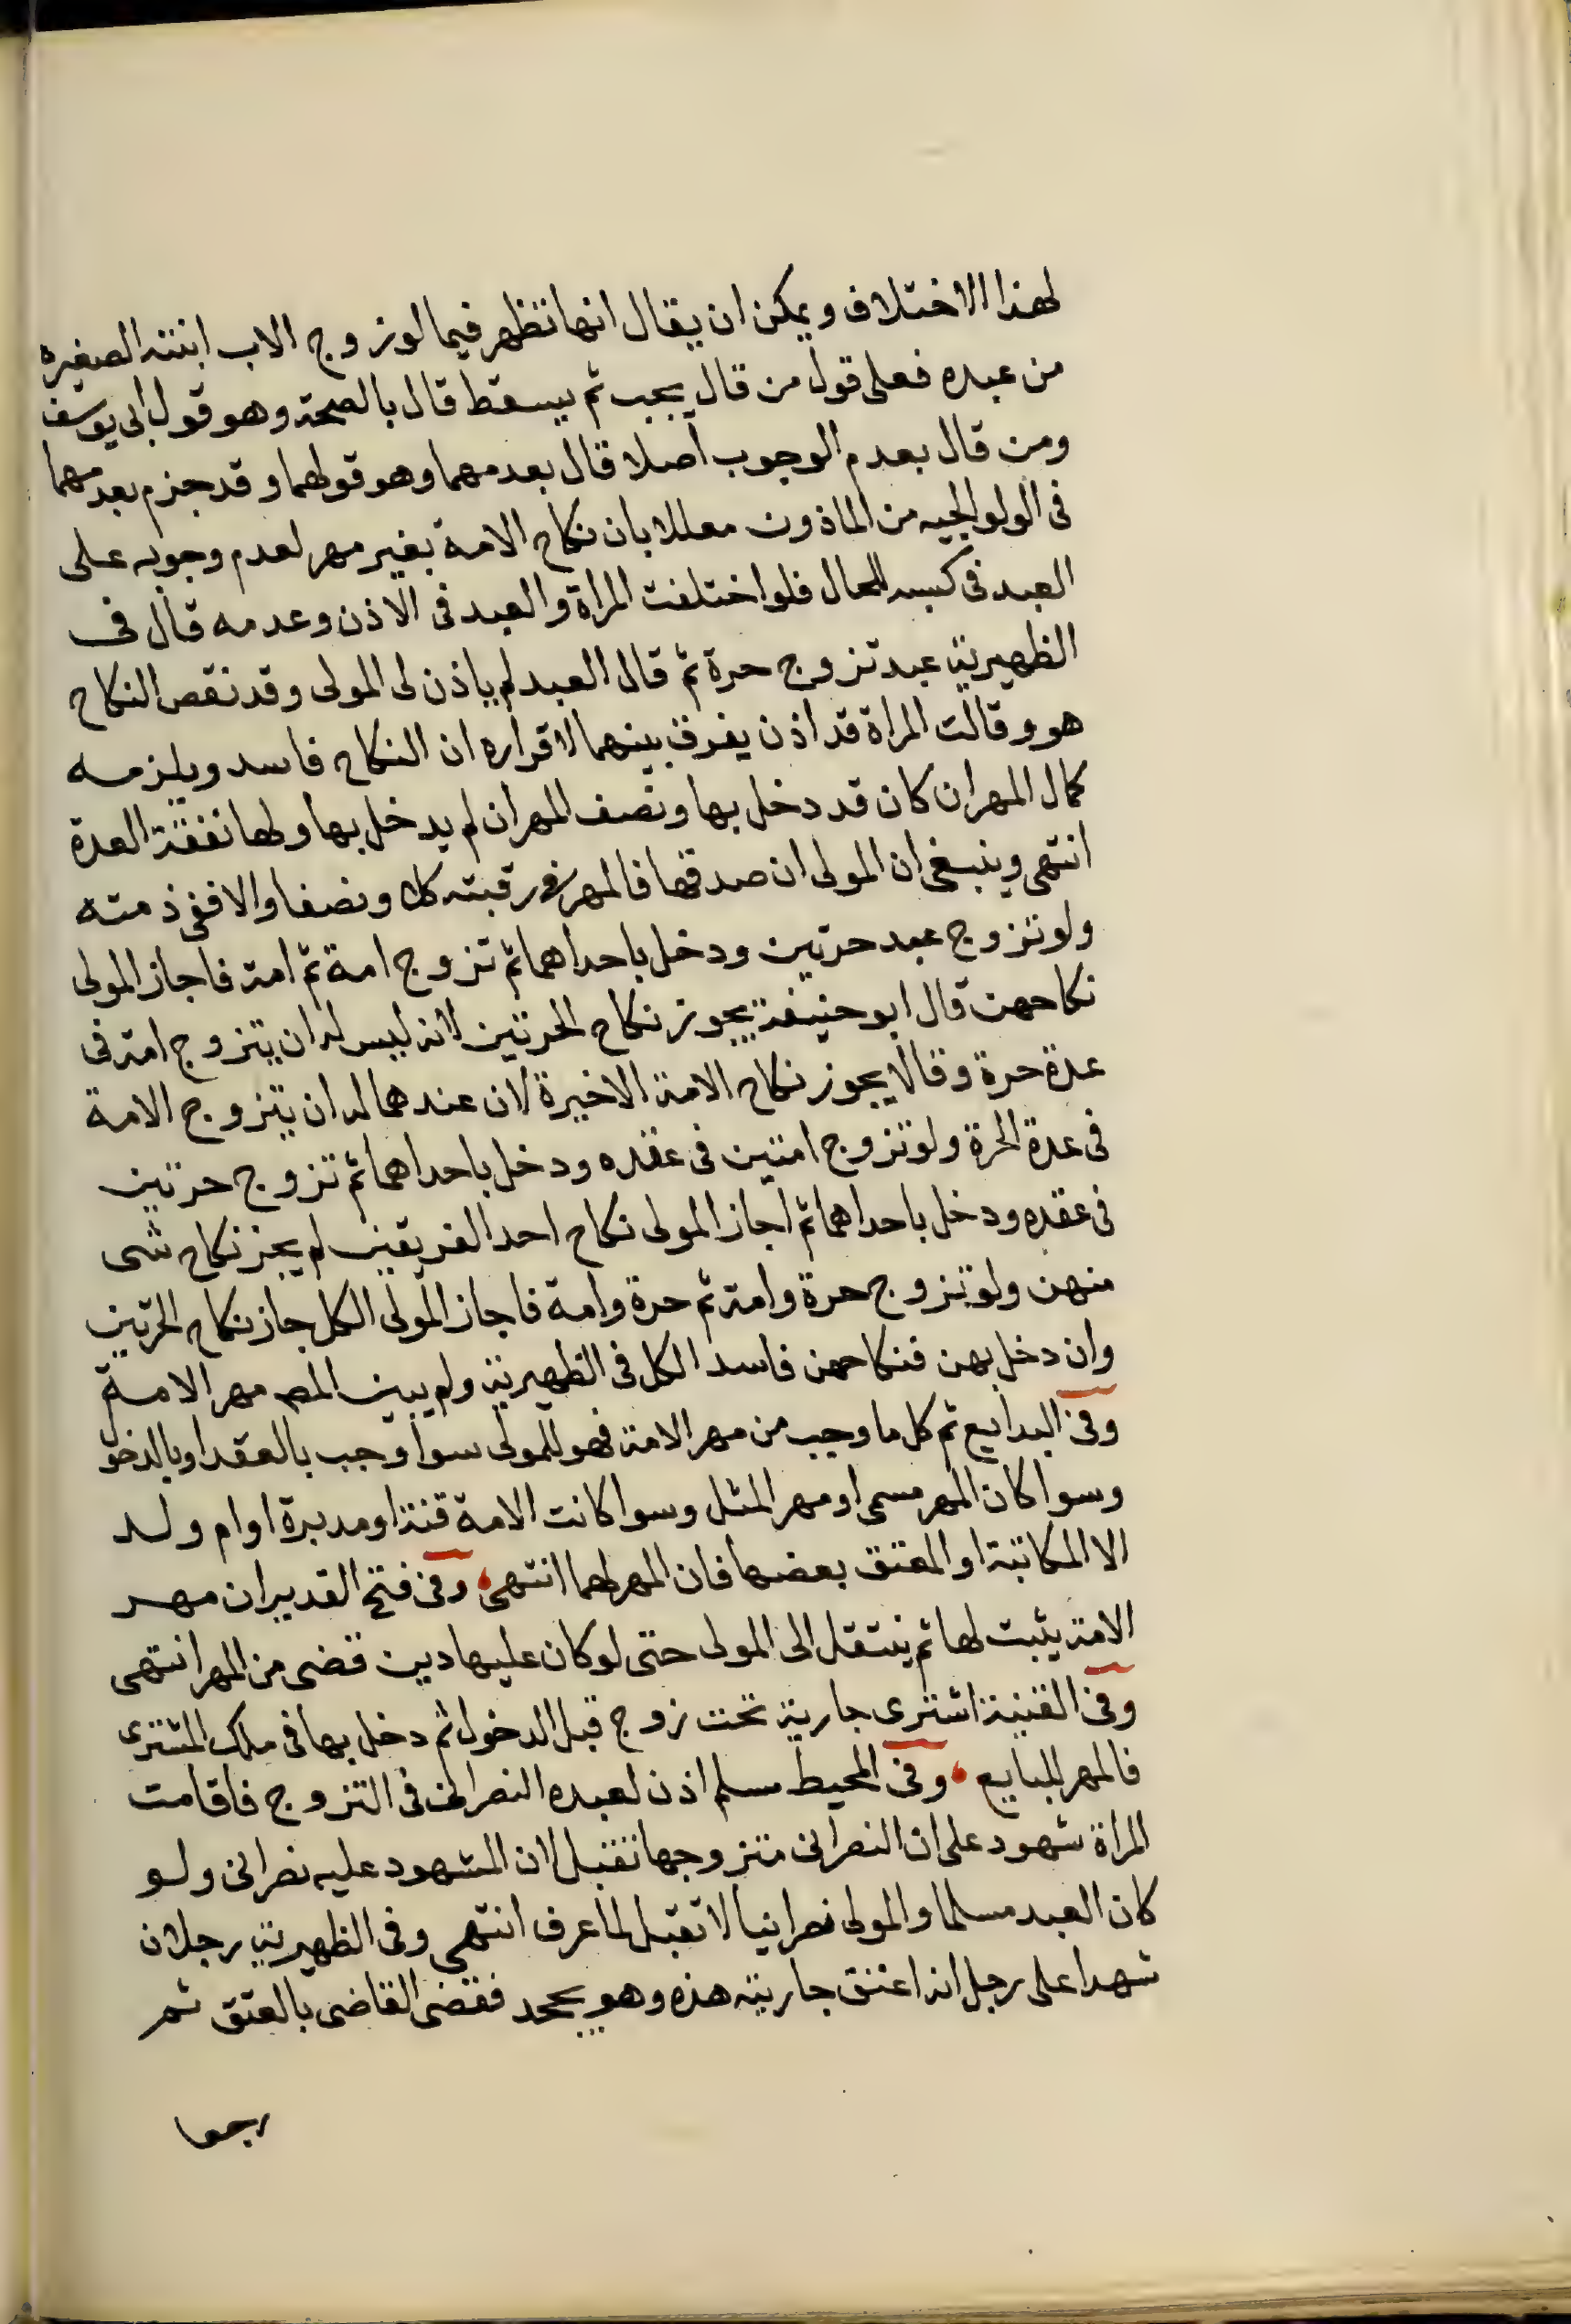 لهذا الاختلاف ويمكن ان يقال انها تظهر فيما لو زوج الاب ابنته الصغيره
من عبده فعلى قول من قال يجب ثم يسقط قال بالصحة وهو قول ابى يوسف
ومن قال بعدم الوجوب اصلا قال بعدمهما وهو قولهما وقد جزم بعدمهما
فى الولوالجيه من الماذون معللا بان نكاح الامة بغير مهر لعدم وجوبه على
العبد فى كسبه للحال فلو اختلفت المراة والعبد فى الاذن وعدمه قال فى
الظهيرية عبد تزوج حرة ثم قال العبد لم ياذن لى المولى وقد نقص النكاح
هو وقالت المراة قد اذن يفرق بينهما لاقراره ان النكاح فاسد ويلزمه
كمال المهر ان كان قد دخل بها ونصف المهر ان لم يدخل بها ولها نفقة العدة
انتهى وينبغى ان المولى ان صدقها فالمهر فى رقبته كلا ونصفا والا ففى ذمته
ولو تزوج عبد حرتين ودخل باحداهما ثم تزوج امة ثم امة فاجاز المولى
نكاحهن قال ابو حنيفة يجوز نكاح الحرتين لانه ليس له ان يتزوج امة فى
عدة حرة وقالا يجوز نكاح الامة الاخيرة لان عندهما له ان يتزوج الامة
فى عدة الحرة ولو تزوج امتين فى عقده ودخل باحداهما ثم تزوج حرتين
فى عقده ودخل باحداهما ثم اجاز المولى نكاح احد الفريقين لم يجز نكاح شى
منهن ولو تزوج حرة وامة ثم حرة وامة فاجاز المولى الكل جاز نكاح الحرتين
وان دخل بهن فنكاحهن فاسد الكل فى الظهيرية ولم يبين المص مهر الامة
وفى البدايع ثم كل ما وجب من مهر الامة فهو للمولى سوا وجب بالعقد او بالدخو
وسوا كان المهر مسمى او مهر المثل وسوا كانت الامة قنة او مدبرة او ام ولد
الا المكاتبة او المعتق بعضها فان المهر لهما انتهى وفى فتح القدير ان مهر
الامة يثبت لها ثم ينتقل الى المولى حتى لو كان عليها دين قضى من المهر انتهى
وفى القنية اشترى جارية تحت زوج قبل الدخول ثم دخل بها فى ملك المشترى
فالمهر للبايع وفى المحيط مسلم اذن لعبده النصرانى فى التزوج فاقامت
المراة شهود على ان النصرانى متزوجها تقبل لان المشهود عليه نصرانى ولو
كان العبد مسلما والمولى نصرانيا لا تقبل لما عرف انتهى وفى الظهيرية رجلان
شهدا على رجل انه اعتق جاريته هذه وهو يجحد فقضى القاضى بالعتق ثم
رجعا